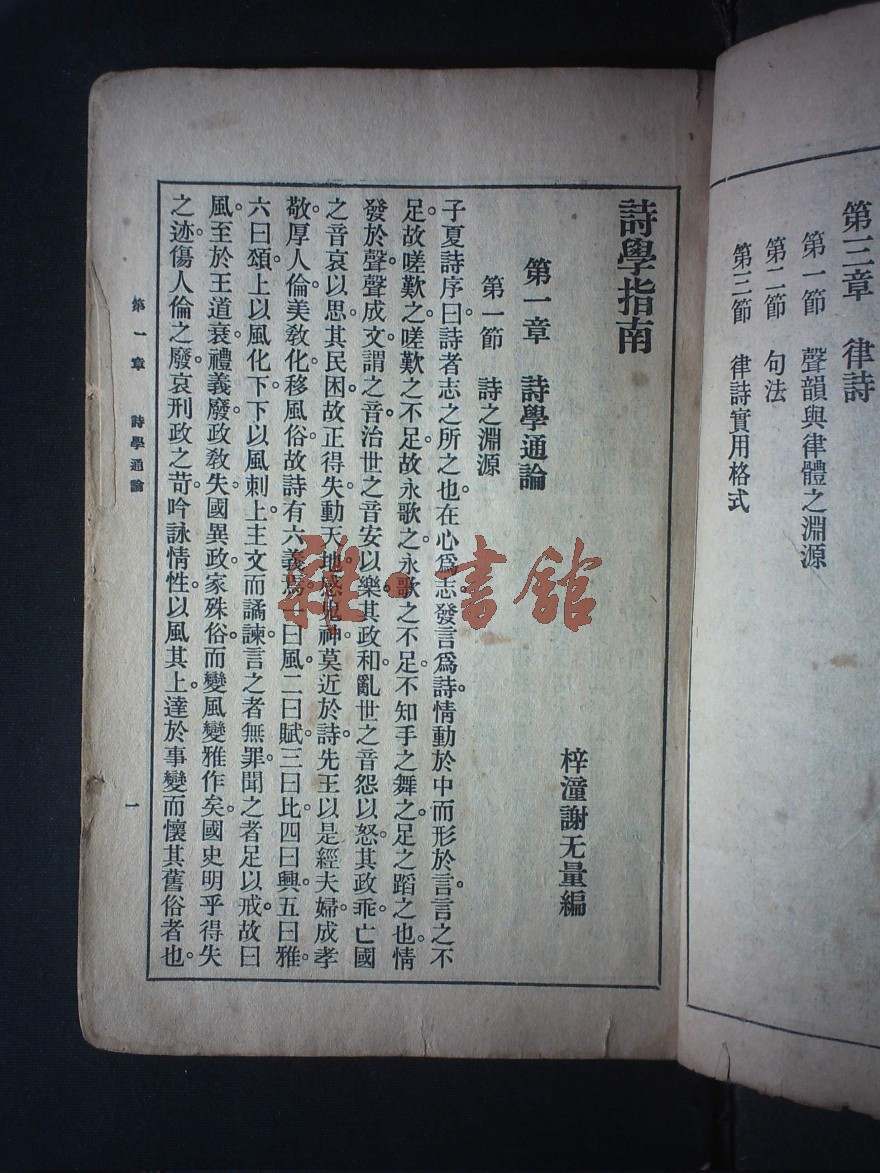 第三章　律詩
第一節　聲韻與律體之淵源
第二節　句法
第三節　律詩實用格式
詩學指南
梓潼謝无量編
第一章　詩學通論
第一節　詩之淵源
子夏詩序曰詩者志之所之也在心爲志發言爲詩。情動於中而形於言。言之不
足。故嗟歎之。嗟歎之不足。故永歌之。永歌之不足。不知手之舞之。足之蹈之也。情
發於聲。聲成文謂之音。治世之音安以樂。其政和。亂世之音怨以怒。其政乖。亡國
之音哀以思。其民困。故正得失。動天地。感鬼神。莫近於詩。先王以是經夫婦。成孝
敬。厚人倫。美教化。移風俗。故詩有六義焉。一曰風。二曰賦。三曰比。四曰興。五曰雅。
六曰頌。上以風化下。下以風刺上。主文而譎諫。言之者無罪。聞之者足以戒。故曰
風。至於王道衰。禮義廢。政教失。國異政。家殊俗。而變風變雅作矣。國史明乎得失
之迹。傷人倫之廢。哀刑政之苛。吟詠情性。以風其上。達於事變而懷其舊俗者也。
第一章　詩學通論
一
雜·書館